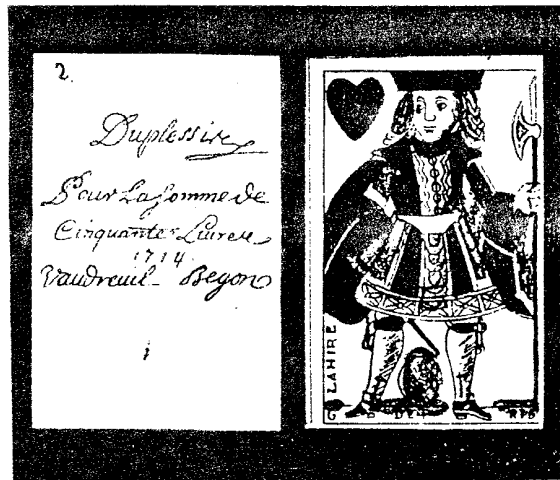 2.
Duplessis
Pour La Somme de
Cinquante Livres
1714
Vaudreuil Begon
G. LAHIRE